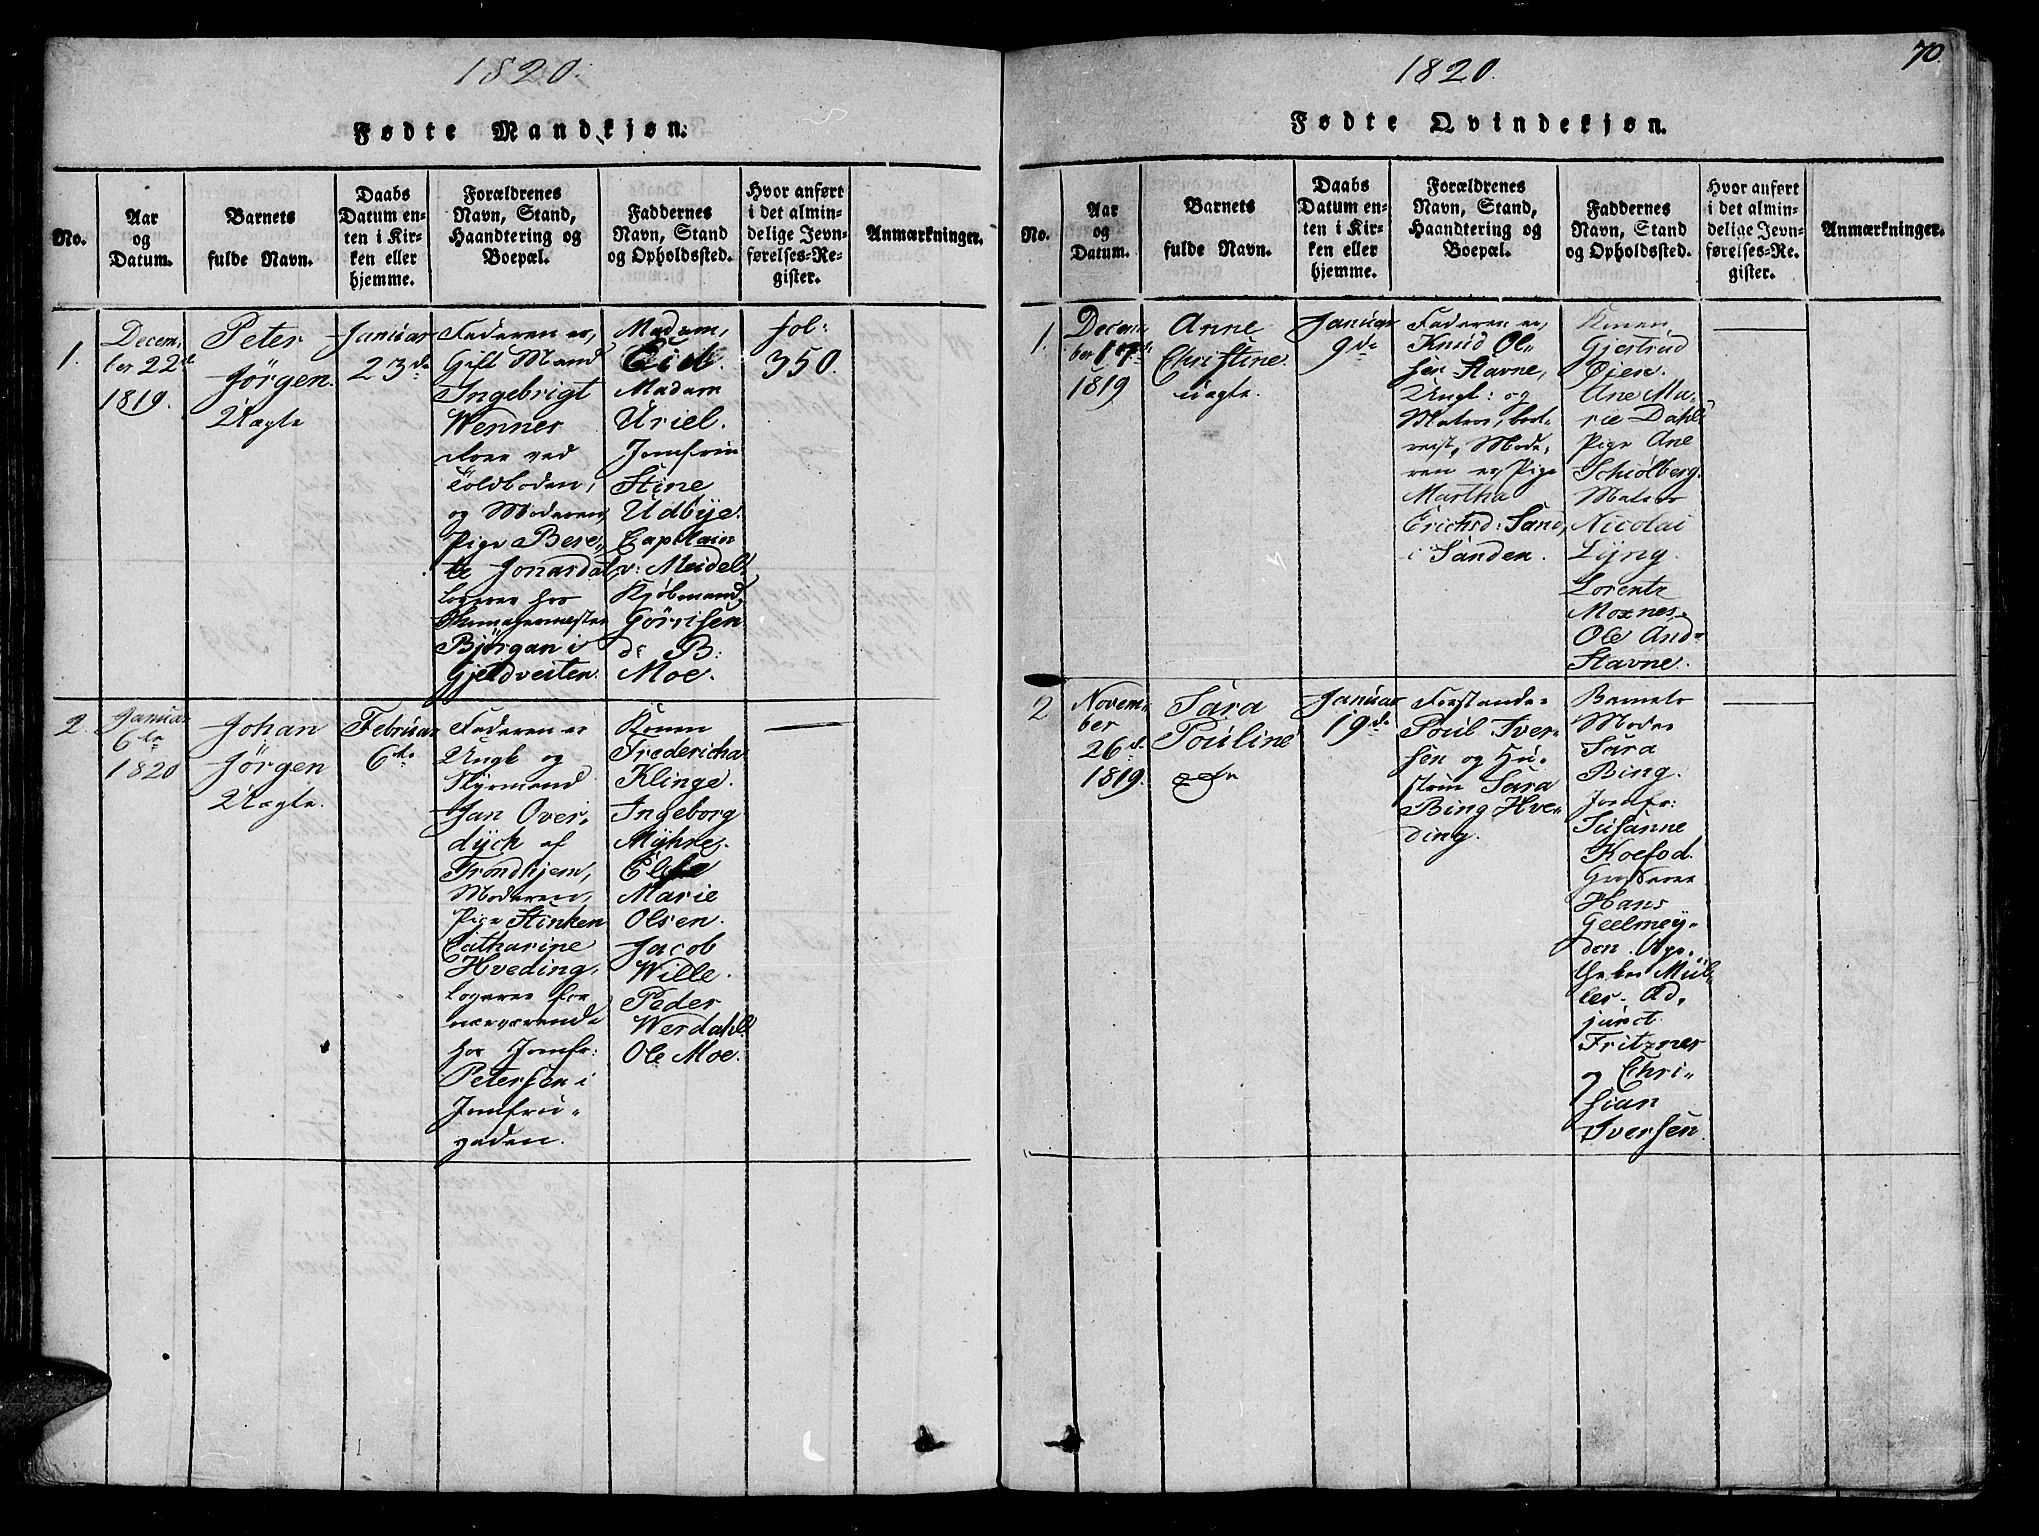 1820.
Fødte Mandkjøn.
No.
Aar
og
Datum.
Barnets
fulde Navn.
Daabs
Datum en-
ten i Kir-
ken eller
hjemme.
Forældrenes
Navn, Stand,
Haandtering og
Boepæl.
Faddernes
Navn, Stand
og Opholdssted.
Hvor anført
i det almin-
delige Jevn-
førelses-Re-
gister.
Anmærkninger.
1.
Decem,
ber 22d
1819.
Peter
Jörgen.
Uægte
Januar
23de
Faderen er,
Gift Mand
Ingebrigt
Wenner
ved
Toldboden,
og Moderen,
Pige Bere„
te Jonasdal,
logerer hos
Skomagermester
Björgan i
Gjeldveiten.
Madam,
Eid.
Madam
Uriel.
Jomfru
Stine
Udbye.
Captain
v: Meidel.
Kjøbmand,
Görrisen
ds B:
Moe.
fol:
350.
2.
Januar
6te
1820
Johan
Jörgen
Uægte.
Februar
6te
Faderen er
Ungk og
Styrmand
Jan Over„
dyck af
Trondhjem,
Moderen,
Pige Stinken
Catharine
Hveding,
logerer for
nærværende
hos Jomfr:
Petersen i
Jomfru„
gaden.
Konen
Fredericha
Klinge.
Ingeborg
Myhre.
Marie
Olsen.
Jacob
Wille.
Peder
Werdahl.
Ole Moe.
1820.
70.
Fødte Qvindekjøn.
No.
Aar
og
Datum.
Barnets
fulde Navn.
Daabs
Datum en-
ten i Kir-
ken eller
hjemme.
Forældrenes
Navn, Stand,
Haandtering og
Boepæl.
Faddernes
Navn, Stand
og Opholdssted.
Hvor anført
i det almin-
delige Jevn-
førelses-Re-
gister.
Anmærkninger.
1.
Decem„
ber
1819
Anne
Christine.
uægte.
Januar
9de
Faderen er,
Knud Ol„
sen Stavne,
Ungk: og
Matros, bort„
reist, Mode„
ren er Pige
Martha
Erichsd: Sand,
i Sanden.
Konen,
Gjertrud
Öien.
Ane Ma„
rie Dahl.
Pige Ane
Schiölberg.
Matros
Nicolai
Lyng.
Lorentz
Moxnes.
Ole And:
Stavne.
2
Novem„
ber
26d.
1819.
Sara
Pouline
ægte
Januar
19de
Forstander
Poul Iver„
sen og Hu„
strue Sara
Bing Hve„
ding.
Barnets
Moder
Sara
Bing.
Jomfr:
Susanne
Koefod.
Hans
Geelmey„
den. Apo„
theker Mül„
ler. Ad„
junct
Fritzner
og Chri„
stian
Iversen.